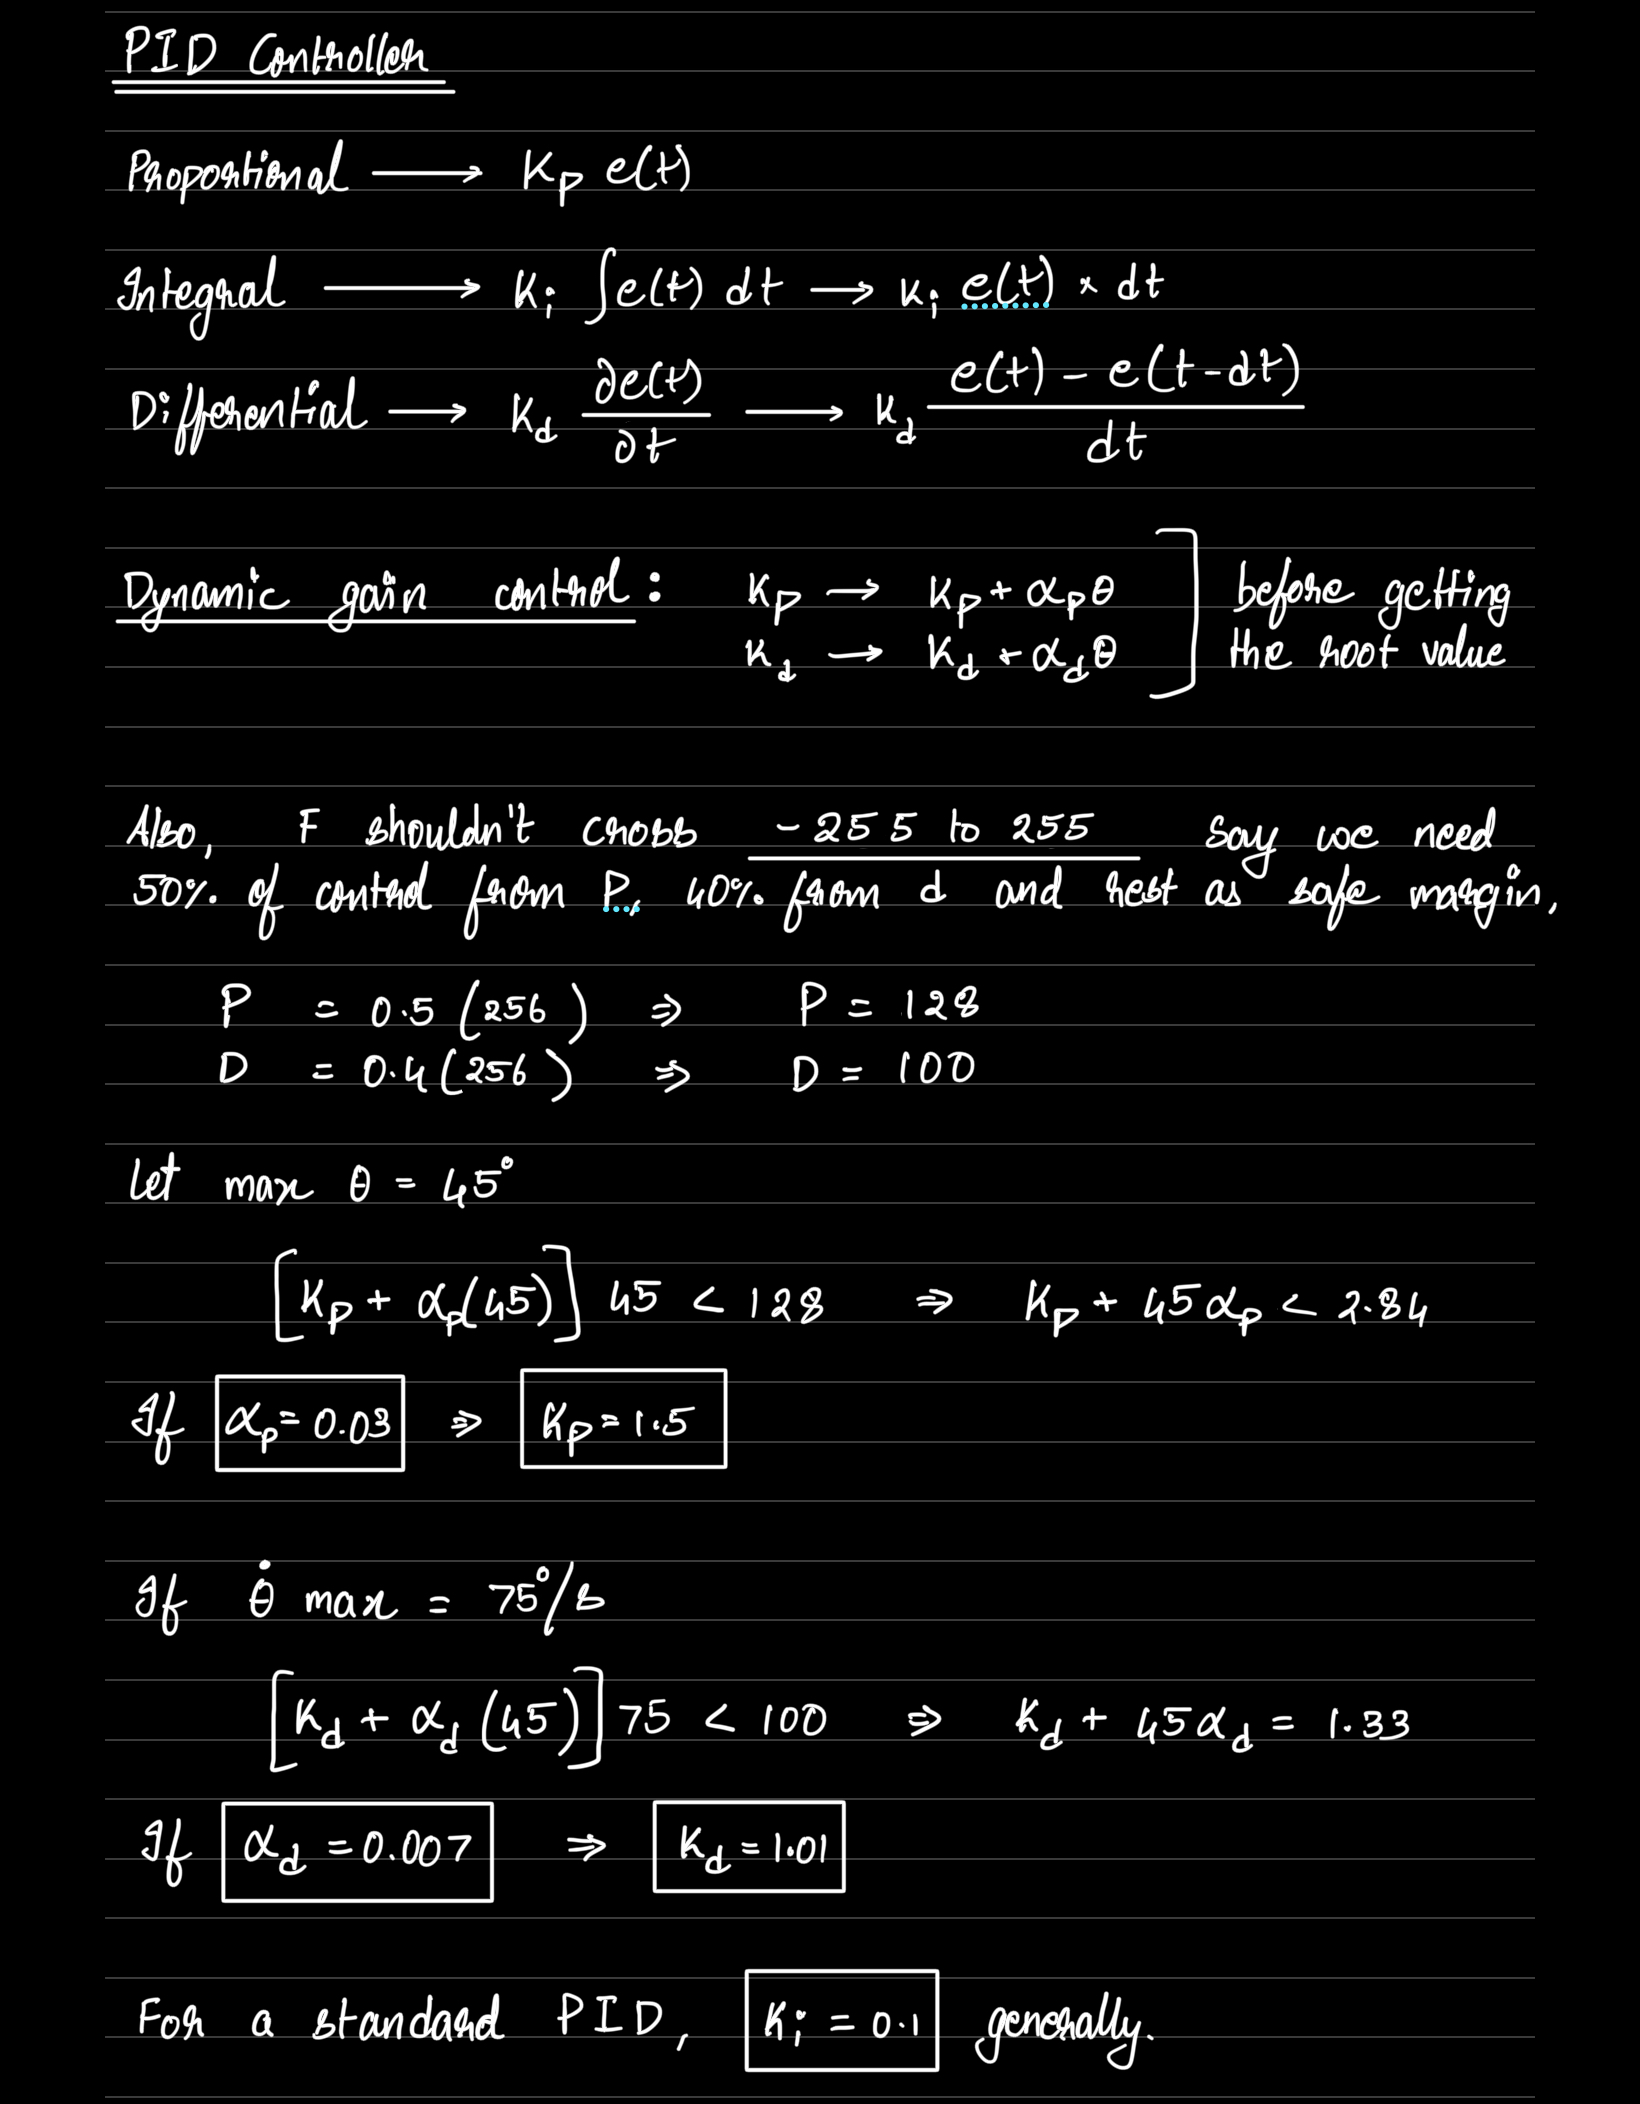 PID Controller
Proportional ⟶ Kp e(t)
Integral ⟶ Ki ∫e(t) dt ⟶ Ki e(t) × dt
Differential ⟶ Kd ∂e(t)/∂t ⟶ Kd (e(t) - e(t-dt))/dt
Dynamic gain control : Kp → Kp + αpθ ] before getting
Kd → Kd + αdθ ] the root value
Also, F shouldn't cross -255 to 255 say we need
50% of control from P, 40% from d and rest as safe margin,
P = 0.5 (256) ⇒ P = 128
D = 0.4 (256) ⇒ D = 100
Let max θ = 45°
[Kp + αp(45)] 45 < 128 ⇒ Kp + 45αp < 2.84
If αp = 0.03 ⇒ Kp = 1.5
If θ̇ max = 75°/s
[Kd + αd (45)] 75 < 100 ⇒ Kd + 45αd = 1.33
If αd = 0.007 ⇒ Kd = 1.01
For a standard PID, Ki = 0.1 generally.